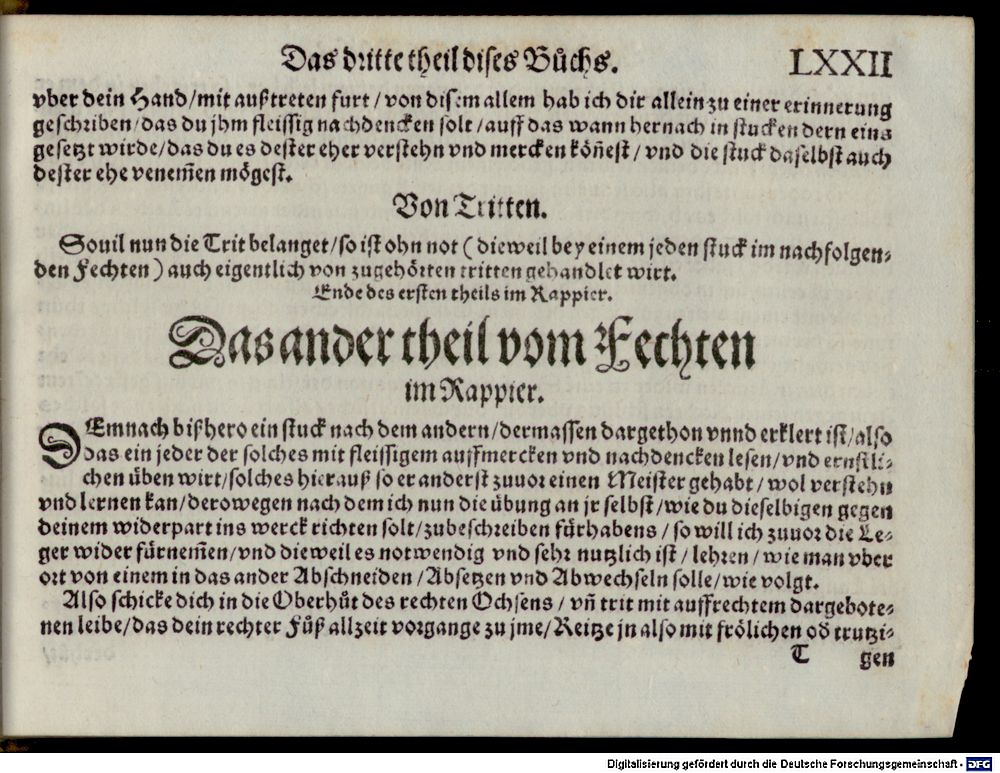 Das dritte theil dises Bůchs. LXXII
vber dein Hand/mit außtreten furt/von disem allem hab ich dir allein zu einer erinnerung
geschriben/das du jhm fleissig nachdencken solt/auff das wann hernach in stucken dern eins
gesetzt wirde/das du es dester eher verstehn vnd mercken kön̄est/vnd die stuck daselbst auch
dester ehe venem̄en mögest.
Von Tritten.
Souil nun die Trit belanget/so ist ohn not (dieweil bey einem jeden stuck im nachfolgen⸗
den Fechten) auch eigentlich von zugehörten tritten gehandlet wirt.
Ende des ersten theils im Rappier.
Das ander theil vom Fechten
im Rappier.
DEmnach bißhero ein stuck nach dem andern/dermassen dargethon vnnd erklert ist/also
das ein jeder der solches mit fleissigem auffmercken vnd nachdencken lesen/vnd ernstli⸗
chen üben wirt/solches hierauß so er anderst zuuor einen Meister gehabt/wol verstehn
vnd lernen kan/derowegen nach dem ich nun die übung an jr selbst/wie du dieselbigen gegen
deinem widerpart ins werck richten solt/zubeschreiben fürhabens/so will ich zuuor die Le⸗
ger wider fürnem̄en/vnd dieweil es notwendig vnd sehr nutzlich ist/lehren/wie man vber
ort von einem in das ander Abschneiden/Absetzen vnd Abwechseln solle/wie volgt.
Also schicke dich in die Oberhůt des rechten Ochsens/vn̄ trit mit auffrechtem dargebote⸗
nen leibe/das dein rechter Fůß allzeit vorgange zu jme/Reitze jn also mit frölichen od̕ trutzi⸗
T gen
Digitalisierung gefördert durch die Deutsche Forschungsgemeinschaft - DFG